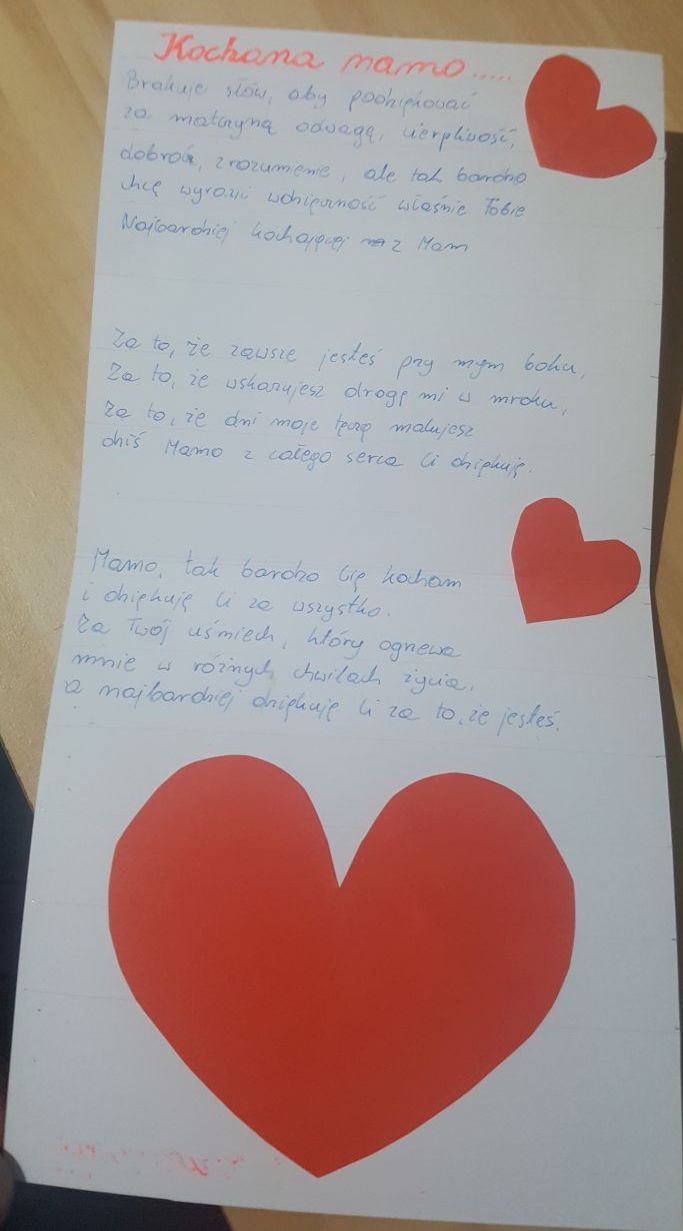 Kochana mamo.....
Brakuje słów, aby podziękować
za matczyną odwagę, cierpliwość,
dobroć, zrozumienie, ale tak bardzo
chcę wyrazić wdzięczność właśnie Tobie
Najbardziej kochającej z Mam
Za to, że zawsze jesteś przy mym boku,
Za to, że wskazujesz drogę mi w mroku,
Za to, że dni moje tęczą malujesz
dziś Mamo z całego serca Ci dziękuję.
Mamo, tak bardzo Cię kocham
i dziękuję Ci za wszystko.
Za Twój uśmiech, który ogrzewa
mnie w różnych chwilach życia,
a najbardziej dziękuję Ci za to, że jesteś.